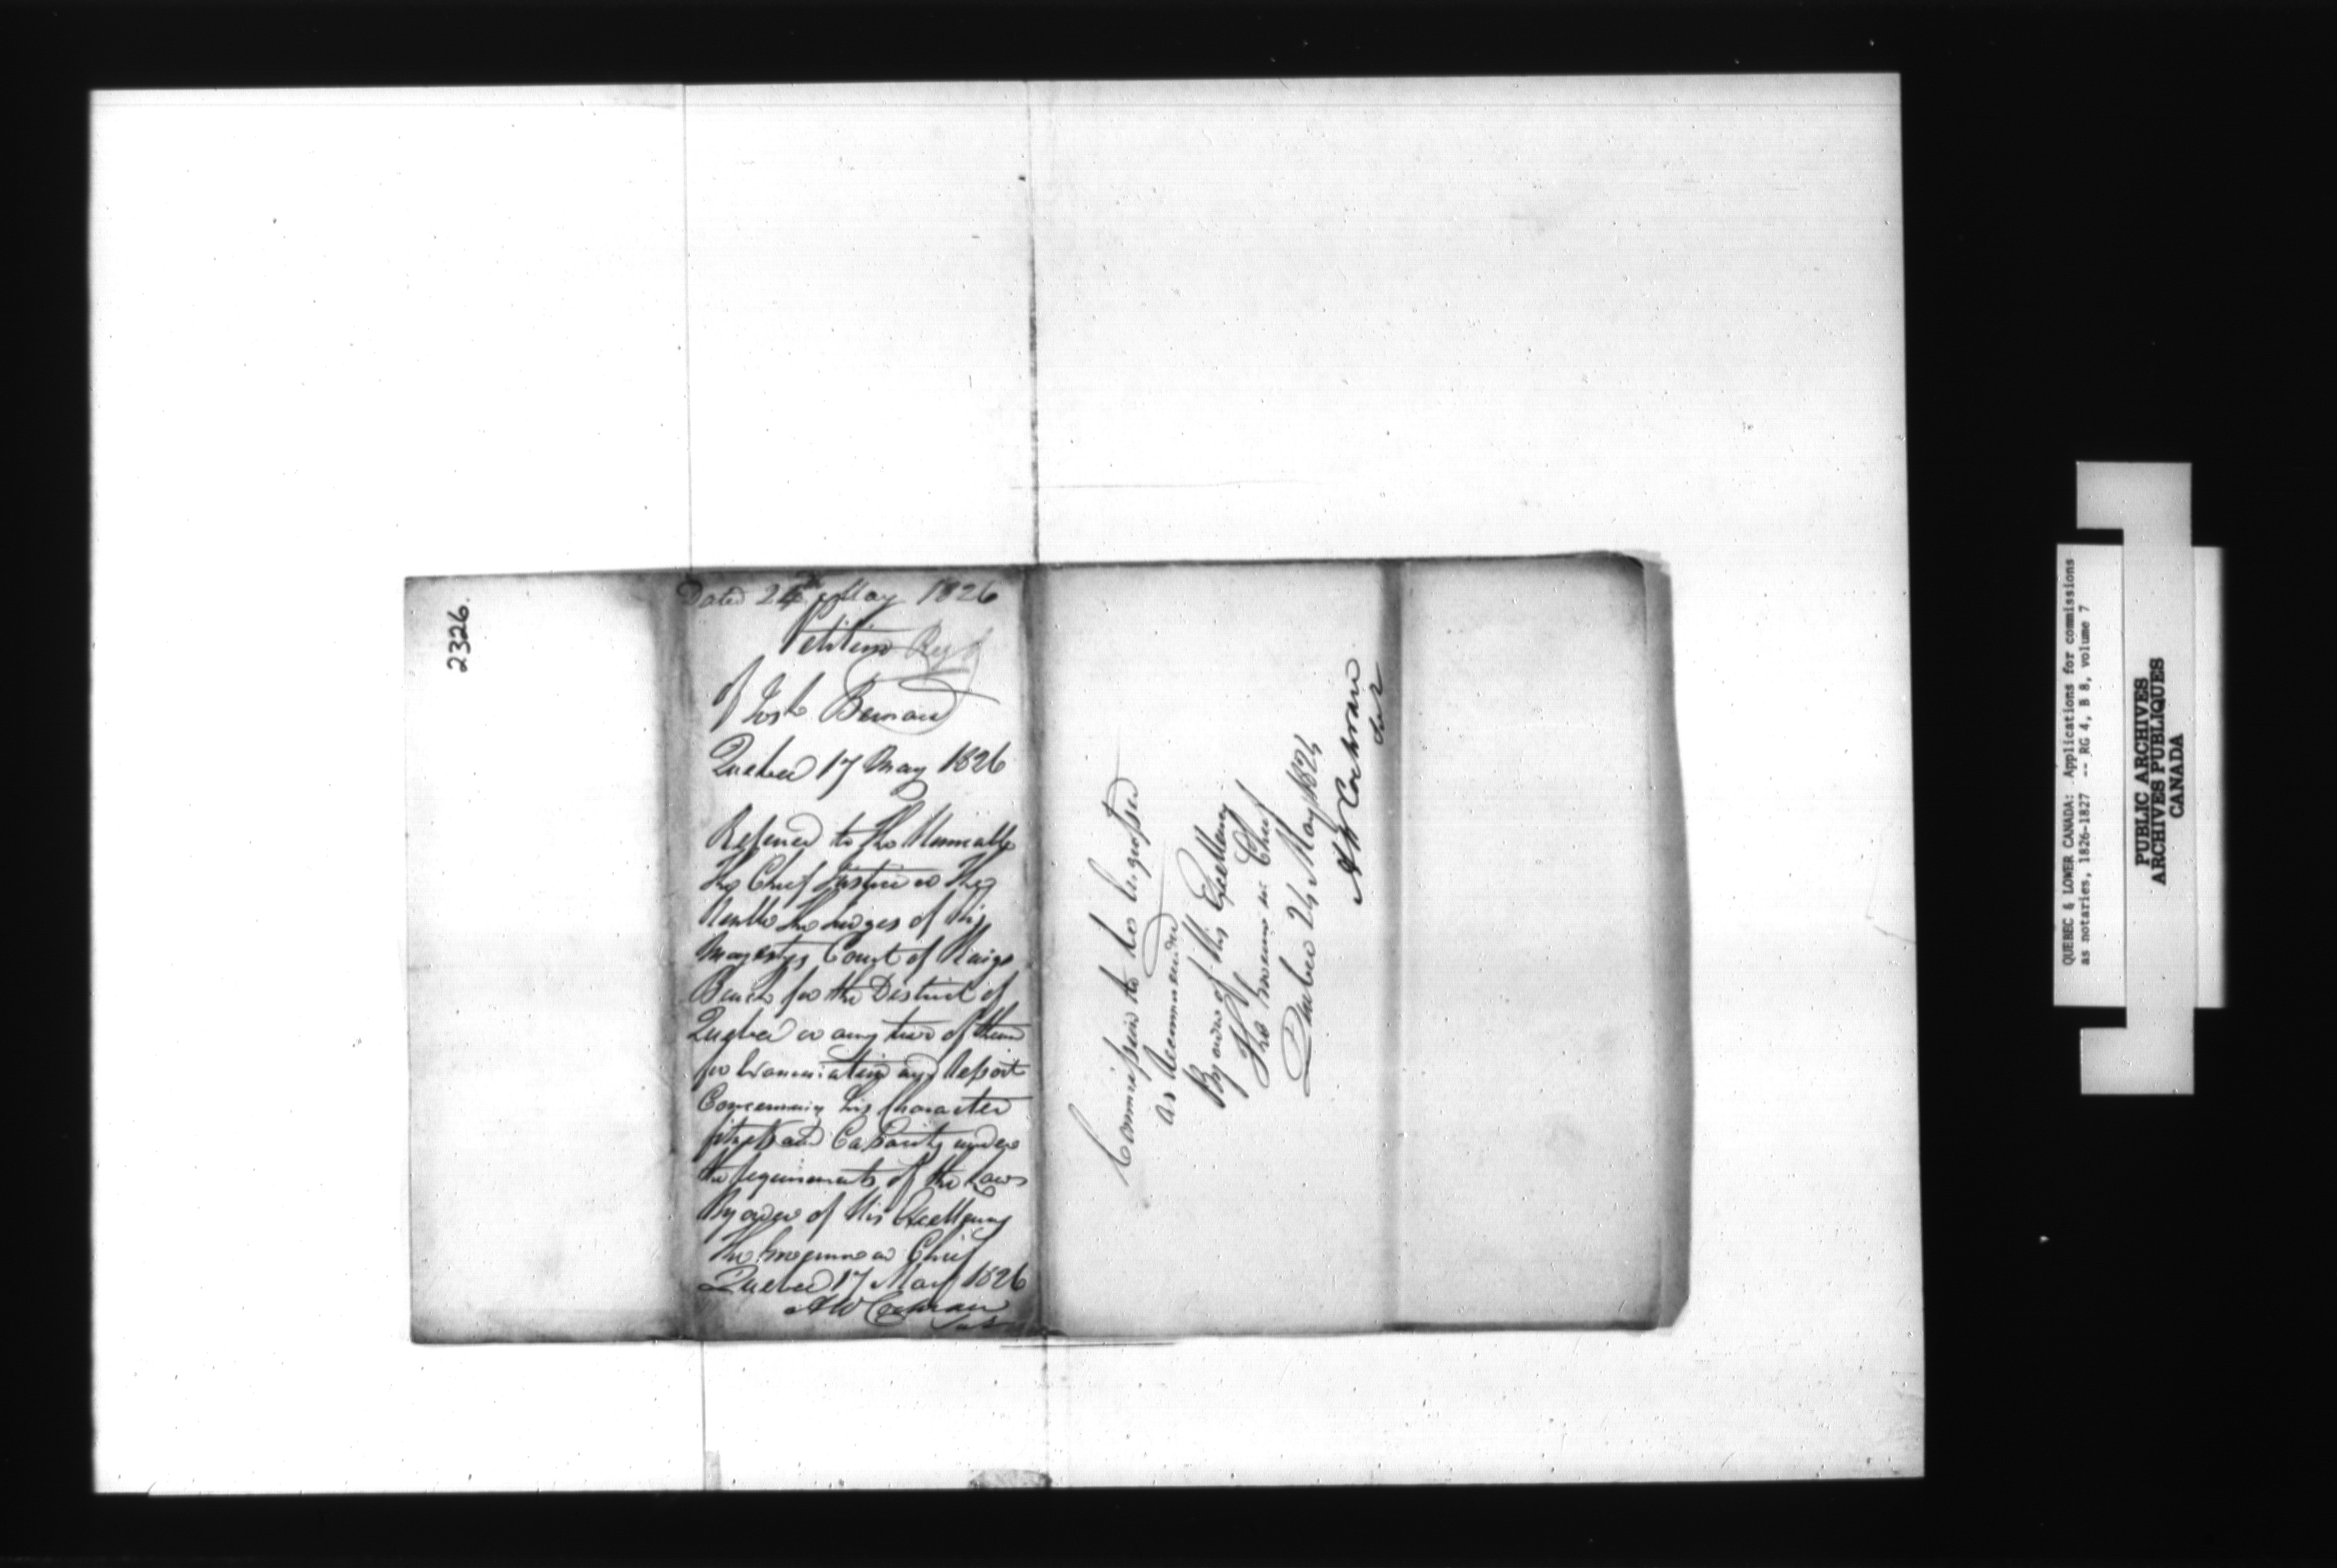 2326.
Dated 24th May 1826
Petition
of Josh Bernard
Quebec 17 May 1826
Referred to the Honorable
The Chief Justice or The
Honble the Judges of His
Majestys Court of Kings
Bench for the District of
Quebec or any two of them
for Examination and Report
Concerning his Character
fitness and Capacity under
the requirements of the Laws
By order of His Excellency
The Governor in Chief
Quebec 17 May 1826
A W Cochran
Sec
Commission to be Engrossed
as recommended
By order of His Excellency
The Governor in Chief
Quebec 24 May 1826
A W Cochran
Sec
QUEBEC & LOWER CANADA: Applications for commissions
as notaries, 1826-1827 -- RG 4, B 8, volume 7
PUBLIC ARCHIVES
ARCHIVES PUBLIQUES
CANADA